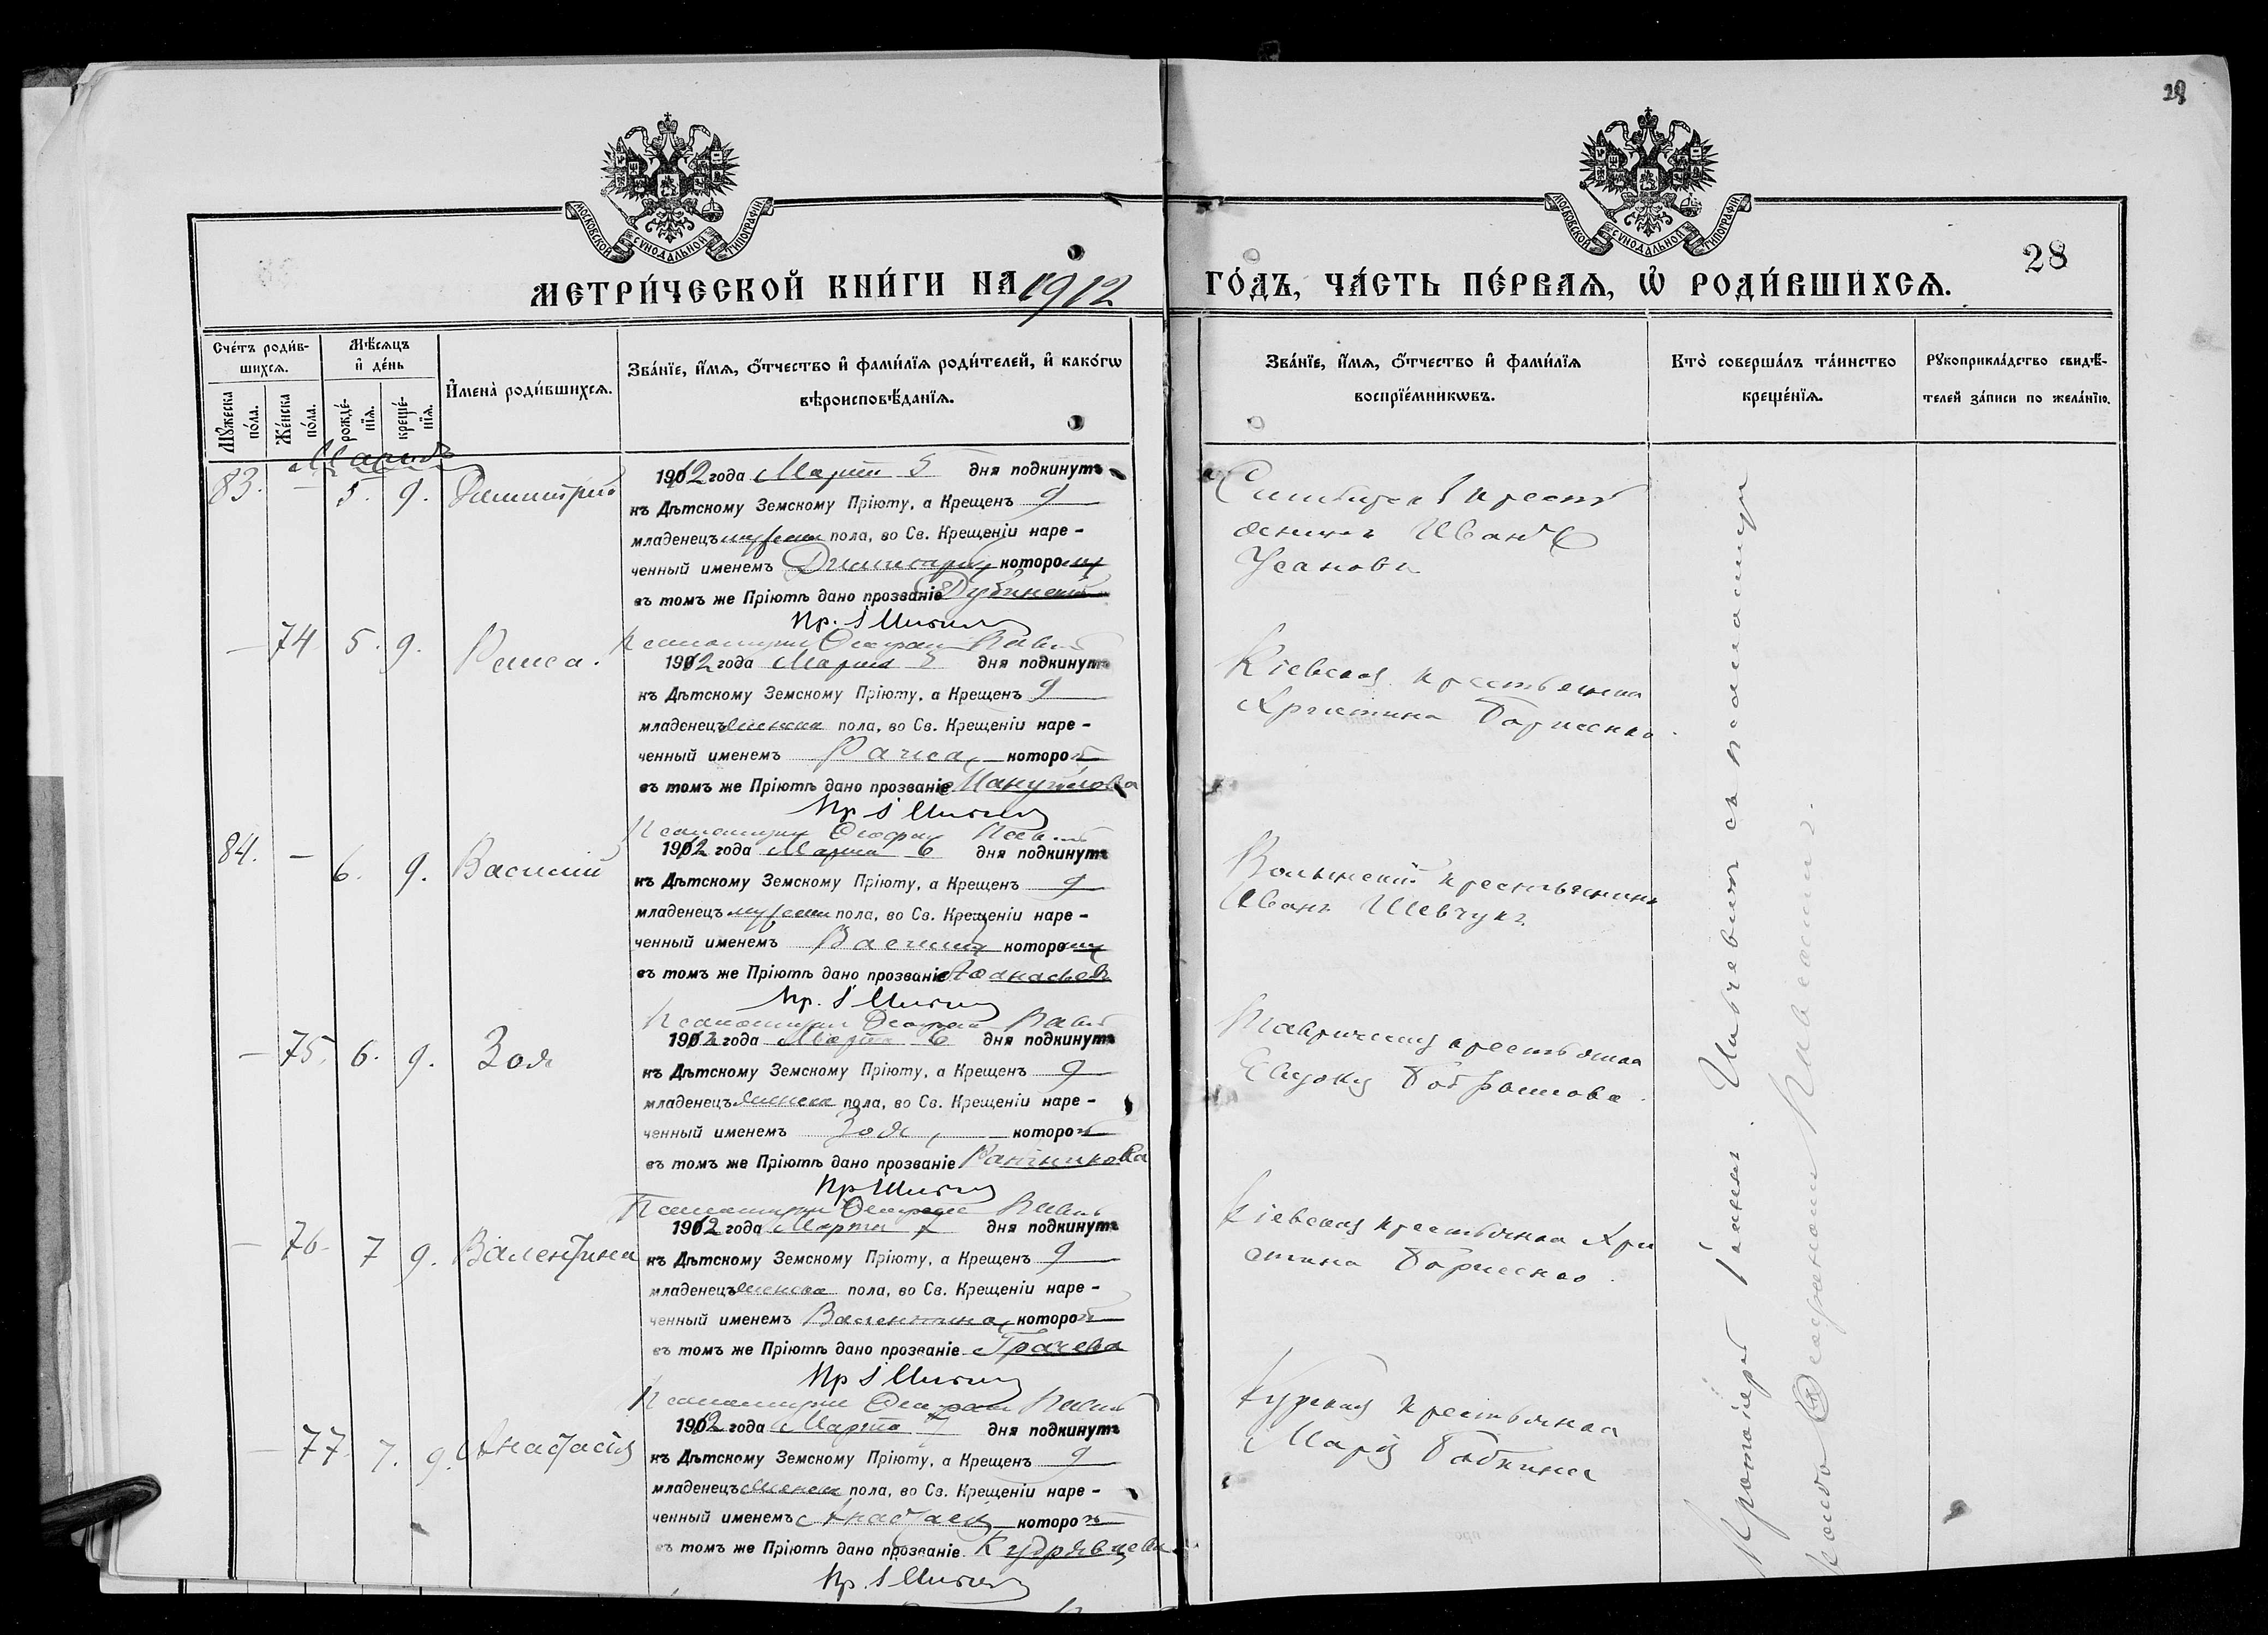 28
МОСКОВСКОЙ СѴНОДАЛЬНОЙ ТИПОГРАФІИ
МОСКОВСКОЙ СѴНОДАЛЬНОЙ ТИПОГРАФІИ
28
МЕТРИ́ЧЕСКОЙ КНИ́ГИ НА 1912 ГО́ДЪ, ЧА́СТЬ ПЕ́РВАѦ, Ѡ҆ РОДИ́ВШИХСѦ.
Сче́тъ роди́в-
шихсѧ.
Мꙋ́жеска по́ла.
Же́нска по́ла.
Мѣ́сѧцъ и҆ де́нь
рожде́-нїѧ.
креще́-нїѧ.
И҆мена̀ роди́вшихсѧ.
Зва́нїе, и҆́мѧ, ѻ҆́тчество и҆ фами́лїѧ роди́телей, и҆ како́гѡ
вѣроисповѣ́данїѧ.
Зва́нїе, и҆́мѧ, ѻ҆́тчество и҆ фами́лїѧ
воспрїе́мникѡвъ.
Кто̀ соверша́лъ та́инство
креще́нїѧ.
Рꙋкоприкла́дство свидѣ́-
телей за́писи по жела́нїю.
Мартъ
83. — 5. 9. Димитрій
1912 года Марта 5 дня подкинутъ
къ Дѣтскому Земскому Пріюту, а Крещенъ 9
младенецъ мужеска пола, во Св. Крещеніи наре-
ченный именемъ Димитрій, которому
въ томъ же Пріютѣ дано прозваніе Дубинскій
Пр. І
крест
Иванъ
Усановъ
— 74 5. 9. Раиса.
Псаломщикъ
1912 года Марта 5 дня подкинутъ
къ Дѣтскому Земскому Пріюту, а Крещенъ 9
младенецъ женска пола, во Св. Крещеніи наре-
ченный именемъ Раиса, которой
въ томъ же Пріютѣ дано прозваніе Мануйлова
Пр. І
Кіевская крестьянка
Христина Борисенко
84. — 6. 9. Василій
Псаломщикъ
1912 года Марта 6 дня подкинутъ
къ Дѣтскому Земскому Пріюту, а Крещенъ 9
младенецъ мужеска пола, во Св. Крещеніи наре-
ченный именемъ Василій, которому
въ томъ же Пріютѣ дано прозваніе Аѳанасьевъ
Пр. І
Волынскій крестьянинъ
Иванъ Шевчукъ
— 75. 6. 9. Зоя
Псаломщикъ
1912 года Марта 6 дня подкинутъ
къ Дѣтскому Земскому Пріюту, а Крещенъ 9
младенецъ женска пола, во Св. Крещеніи наре-
ченный именемъ Зоя, которой
въ томъ же Пріютѣ дано прозваніе
Пр
Таврическая крестьянка
— 76. 7 9. Валентина
Псаломщикъ
1912 года Марта 7 дня подкинутъ
къ Дѣтскому Земскому Пріюту, а Крещенъ 9
младенецъ женска пола, во Св. Крещеніи наре-
ченный именемъ Валентина, которой
въ томъ же Пріютѣ дано прозваніе Грачева
Пр І
Кіевская крестьянка Хри
стина Борисенко
— 77. 7. 9. Анастасія
Псаломщикъ
1912 года Марта 7 дня подкинутъ
къ Дѣтскому Земскому Пріюту, а Крещенъ 9
младенецъ женска пола, во Св. Крещеніи наре-
ченный именемъ Анастасія, которой
въ томъ же Пріютѣ дано прозваніе Кудрявцева
Пр. І
Курская крестьянка
Марія Бабкина
Протоіерей Іоаннъ съ псаломщи
комъ